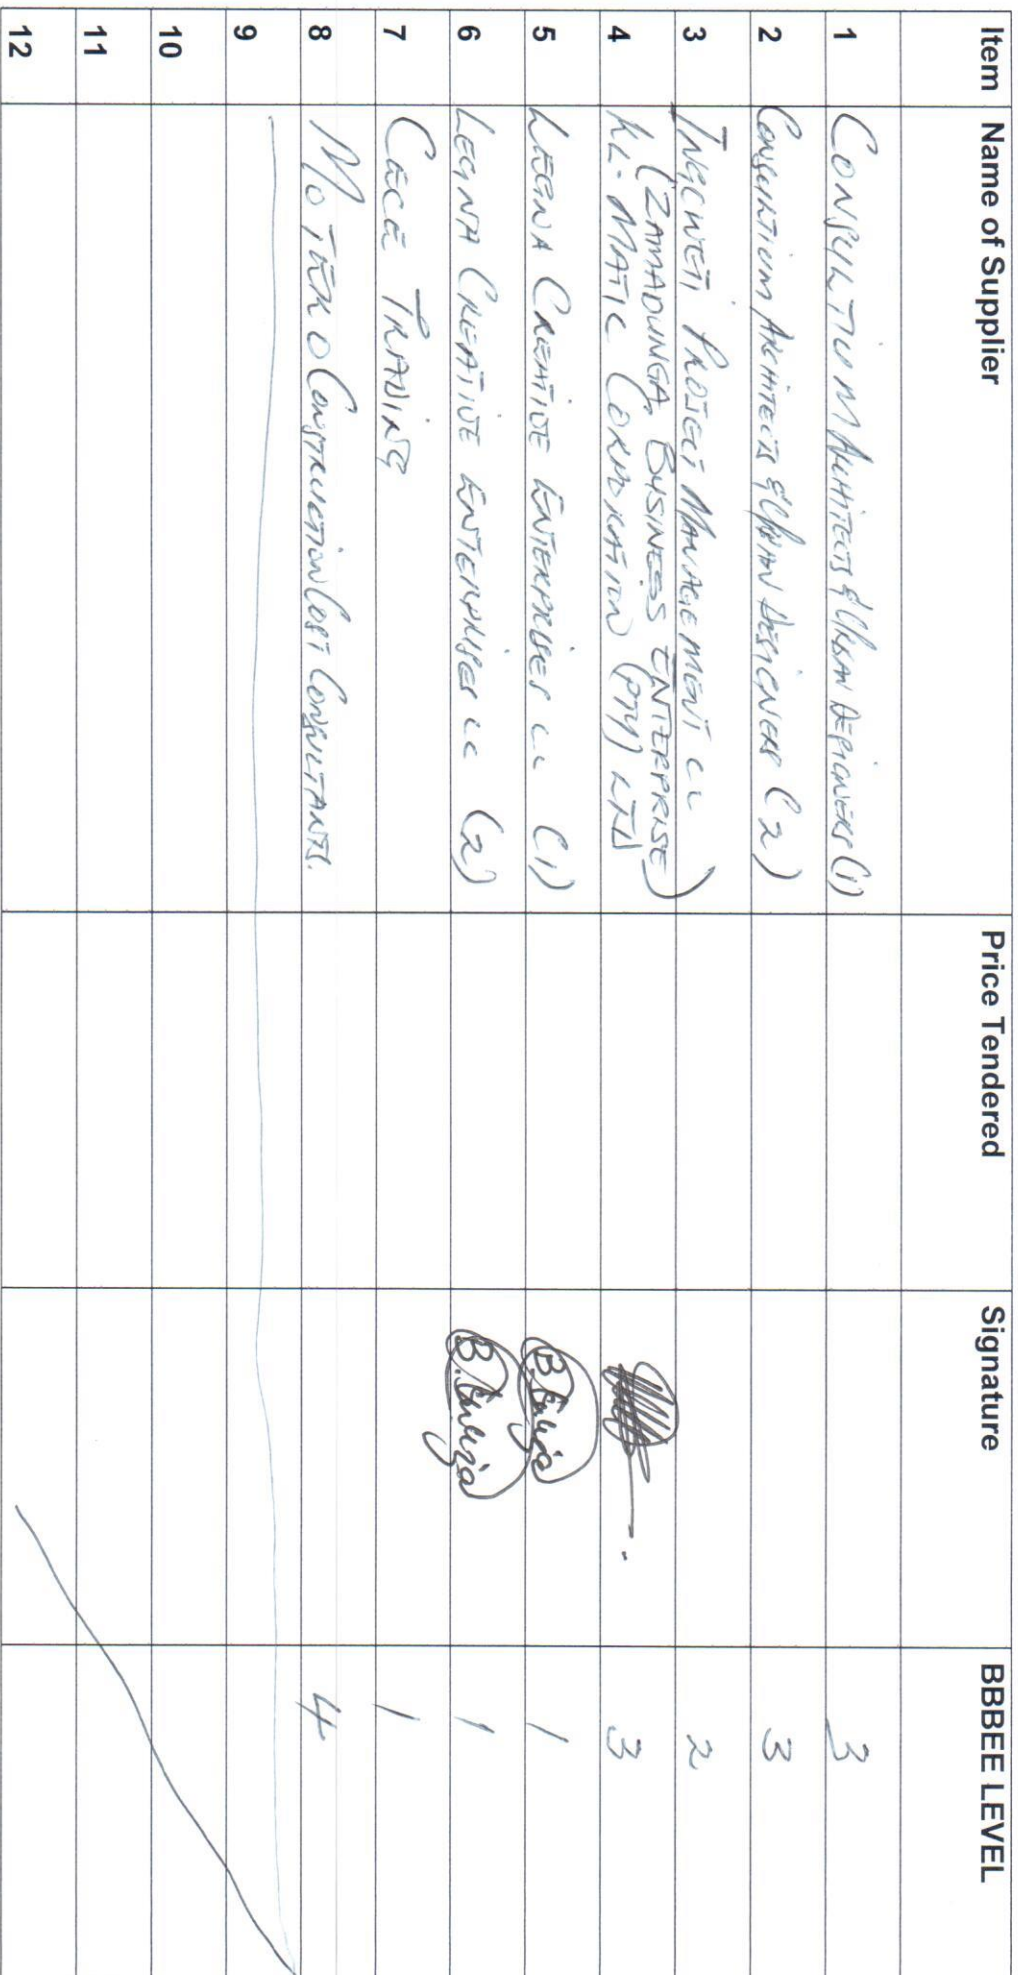 Item Name of Supplier Price Tendered Signature BBBEE LEVEL
1 CONSULTIUM ARCHITECTS & URBAN DESIGNERS (1) 3
2 CONSULTIUM ARCHITECTS & URBAN DESIGNERS (2) 3
3 INGCWETI PROJECT MANAGEMENT CC 2
(ZAMADUNGA BUSINESS ENTERPRISE)
4 KL-MATIC CORPORATION (PTY) LTD 3
5 LEGNA CREATIVE ENTERPRISES CC (1) 1
6 LEGNA CREATIVE ENTERPRISES CC (2) 1
7 CECE TRADING 1
8 MOTEKO CONSTRUCTION COST CONSULTANTS. 4
9
10
11
12